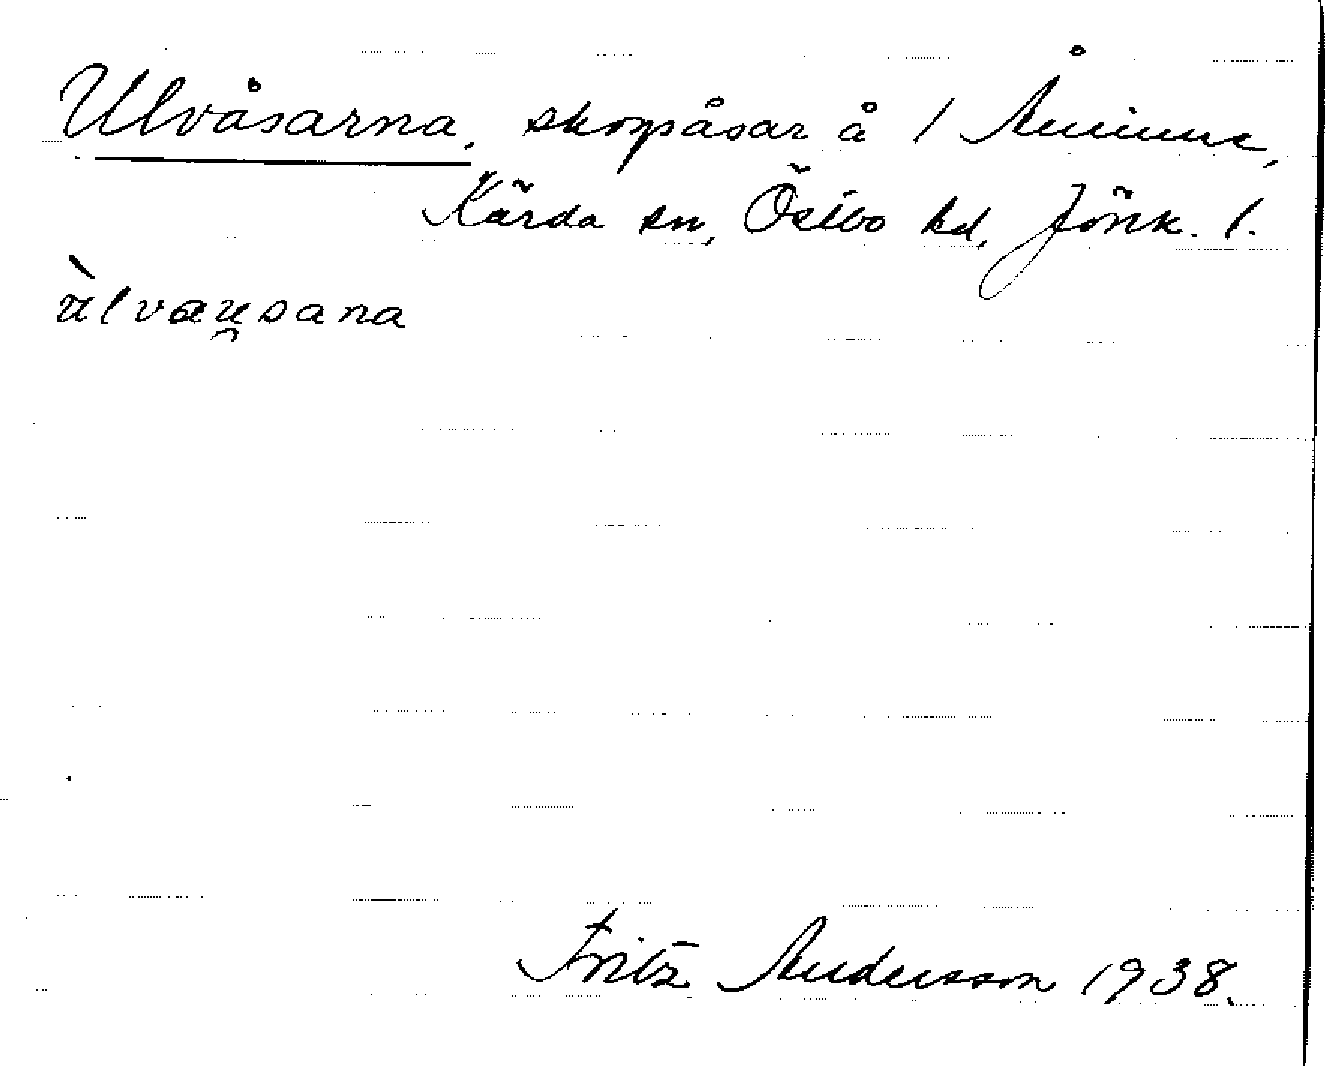 Ulvåsarna, skogsåsar å 1 Åminne,
Kärda sn, Östbo hd, Jönk. l.
ùlvau̯sana
Fritz Andersson 1938.